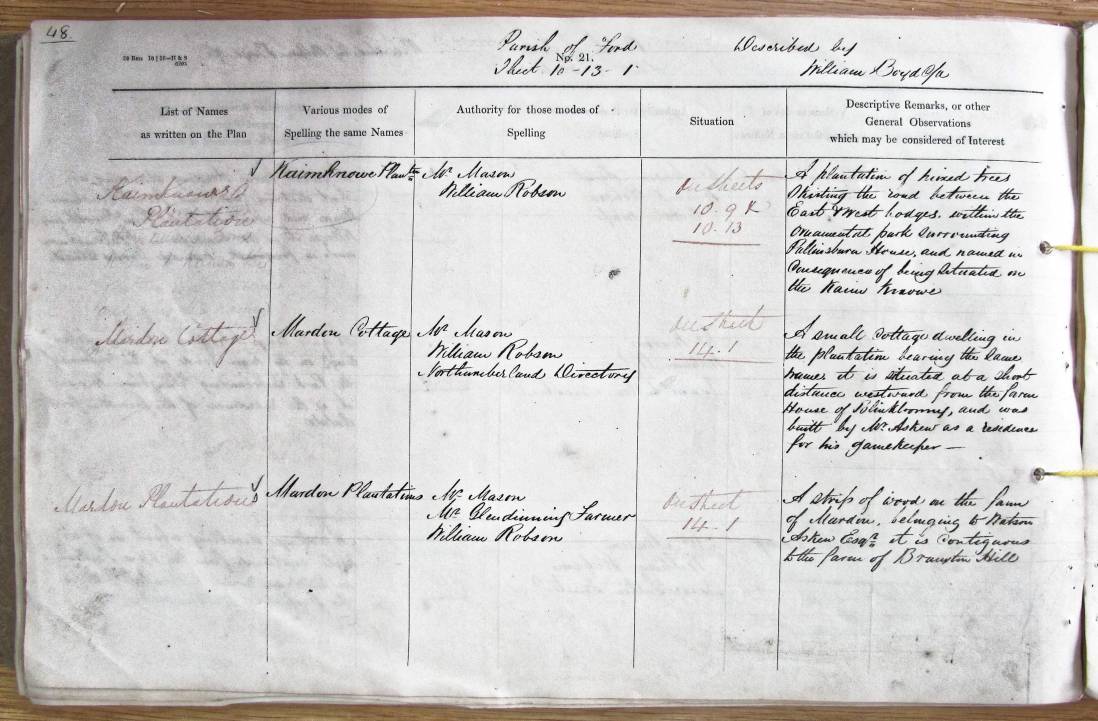 48.
Parish of Ford
No. 21.
Sheet 10-13-1
Described by
William Boyd C/a
List of Names
as written on the Plan
Various modes of
Spelling the same Names
Authority for those modes of
Spelling
Situation
Descriptive Remarks, or other
General Observations
which may be considered of Interest
Kaimknowe
Plantation
Kaimknowe Plantn
Mr. Mason
William Robson
On Sheets
10. 9 &
10. 13
A plantation of mixed trees
Skirting the road between the
East & West Lodges, within the
Ornamental park surrounding
Pallinsburn House, and named in
Consequence of being Situated on
the Kaim Knowe
Mardon Cottage
Mardon Cottage
Mr. Mason
William Robson
Northumberland Directory
On Sheet
14. 1
A small Cottage dwelling in
the plantation bearing the Same
name it is situated at a Short
distance westward from the farm
House of Blinkbonny, and was
built by Mr. Askew as a residence
for his gamekeeper —
Mardon Plantations
Mardon Plantations
Mr. Mason
Mr. Glendinning Farmer
William Robson
On Sheet
14. 1
A strip of wood on the farm
of Mardon, belonging to Watson
Askew Esqr. it is contiguous
to the farm of Branxton Hill